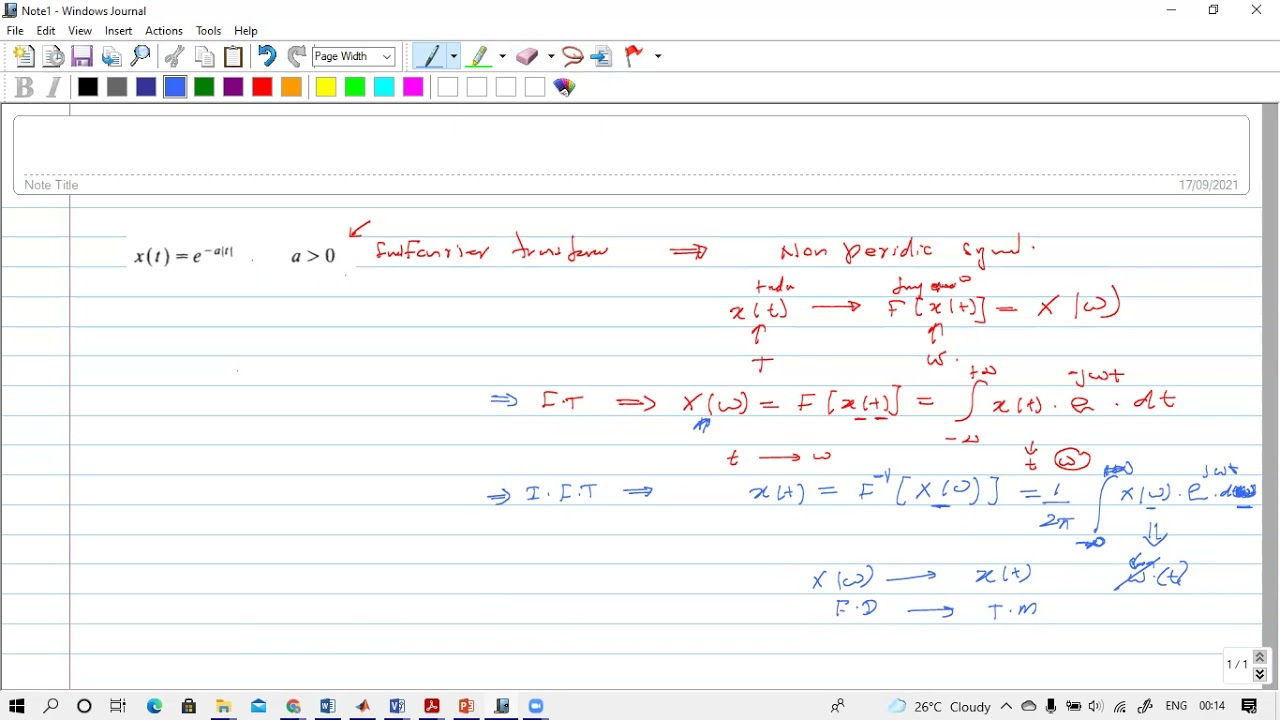 Note1 - Windows Journal
File Edit View Insert Actions Tools Help
Page Width
B I
Note Title 17/09/2021
x(t) = e^{-a|t|} a > 0 transform ⇒ Non peridic
x(t) → F[x(t)] = X(ω)
↑ ↑
T ω.
⇒ F.T ⇒ X(ω) = F[x(t)] = ∫_{-∞}^{+∞} x(t) . e^{-jωt} . dt
t → ω t ω
⇒ I.F.T ⇒ x(t) = F^{-1}[X(ω)] = 1/2π ∫ X(ω) . e^{jωt} . dω
X(ω) → x(t) (t)
F.D → T.M
1 / 1
26°C Cloudy ENG 00:14